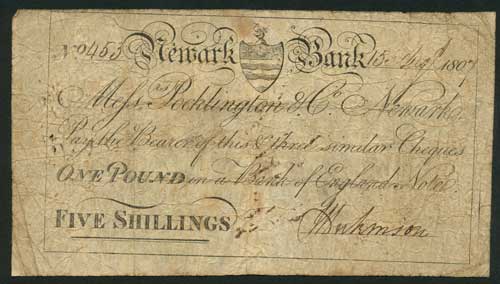 No 453 Newark Bank 15 1807
Messrs Pocklington & Co Newark
Pay the Bearer of this & three similar Cheques
ONE POUND in a Bank of England Note
FIVE SHILLINGS